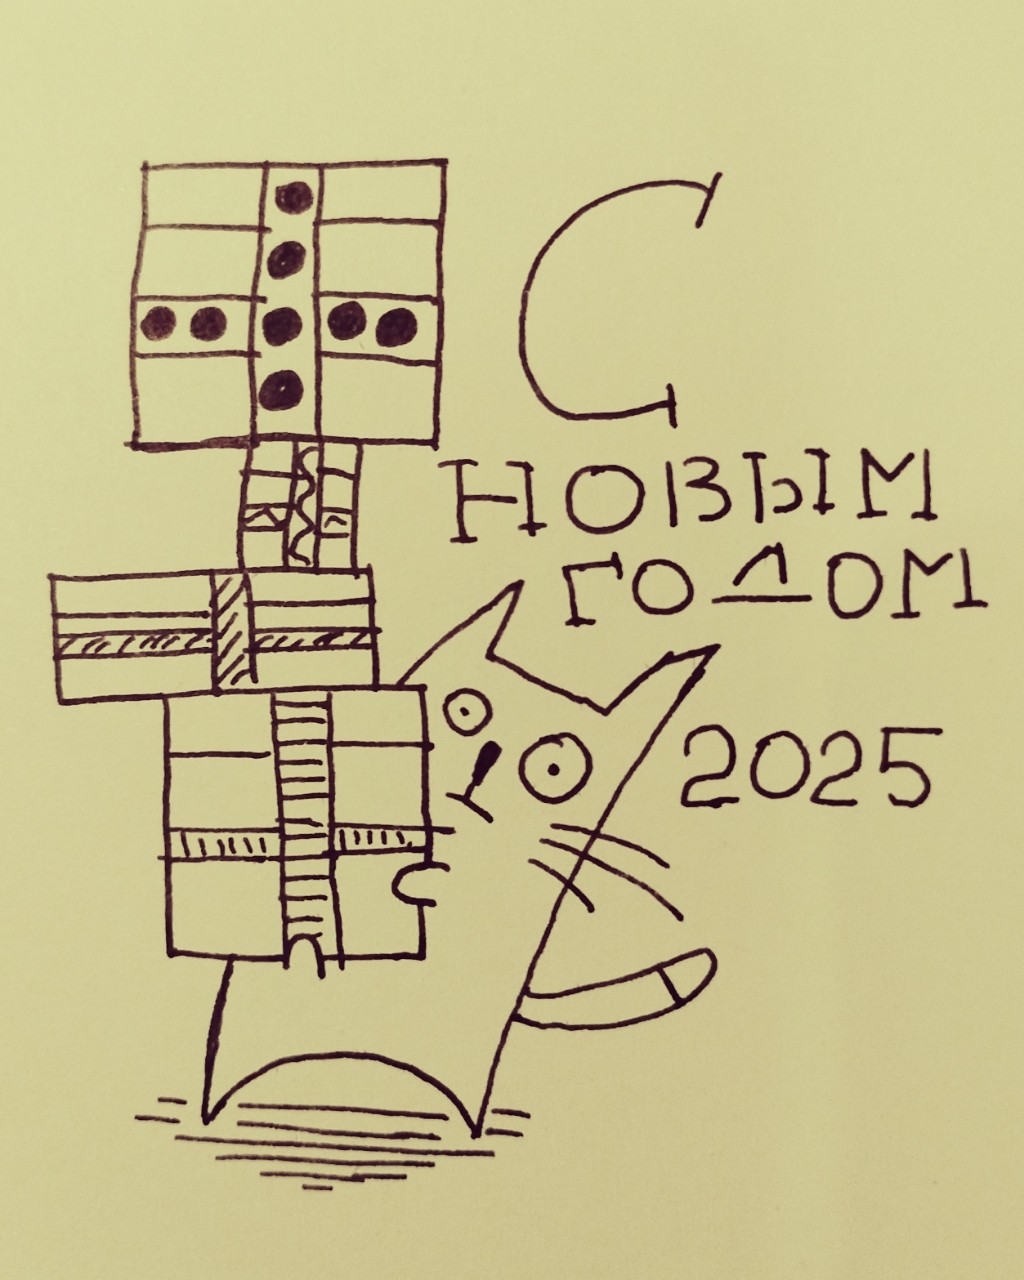 С
НОВЫМ
ГОДОМ
2025